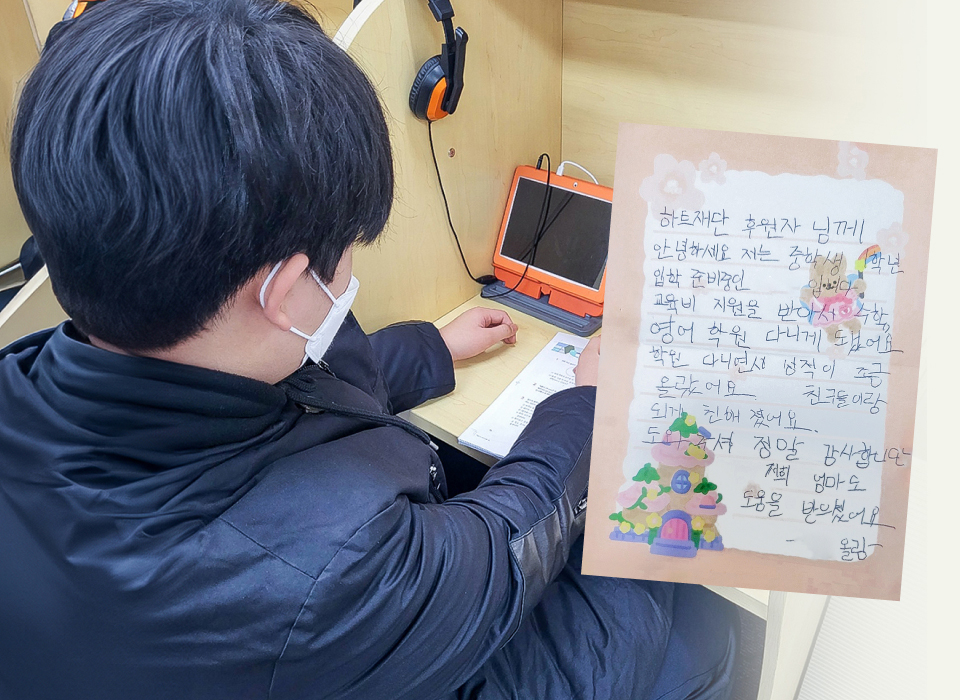 하트재단 후원자 님께
안녕하세요 저는 중학생 1학년
입학 준비중인 입니다
교육비 지원을 받아서 수학
영어 학원 다니게 되었어요
학원 다니면서 성적이 조금
올랐어요 친구들이랑
되게 친해 졌어요.
도와주셔서 정말 감사합니다
저희 엄마도
도움을 받으셨어요
- 올림-